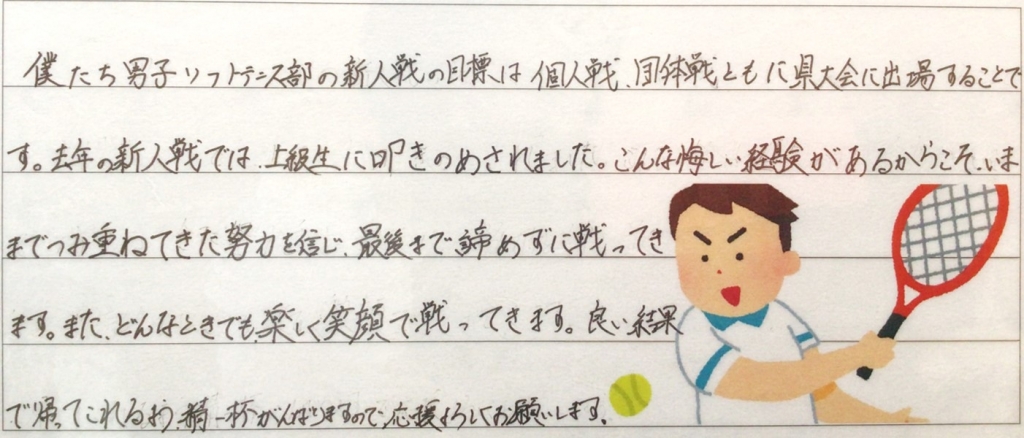 僕たち男子ソフトテニス部の新人戦の目標は個人戦、団体戦ともに県大会に出場することで
す。去年の新人戦では、上級生に叩きのめされました。こんな悔しい経験があるからこそ、いま
までつみ重ねてきた努力を信じ、最後まで諦めずに戦ってき
ます。また、どんなときでも楽しく笑顔で戦ってきます。良い結果
で帰ってこれるよう、精一杯がんばりますので、応援よろしくお願いします。